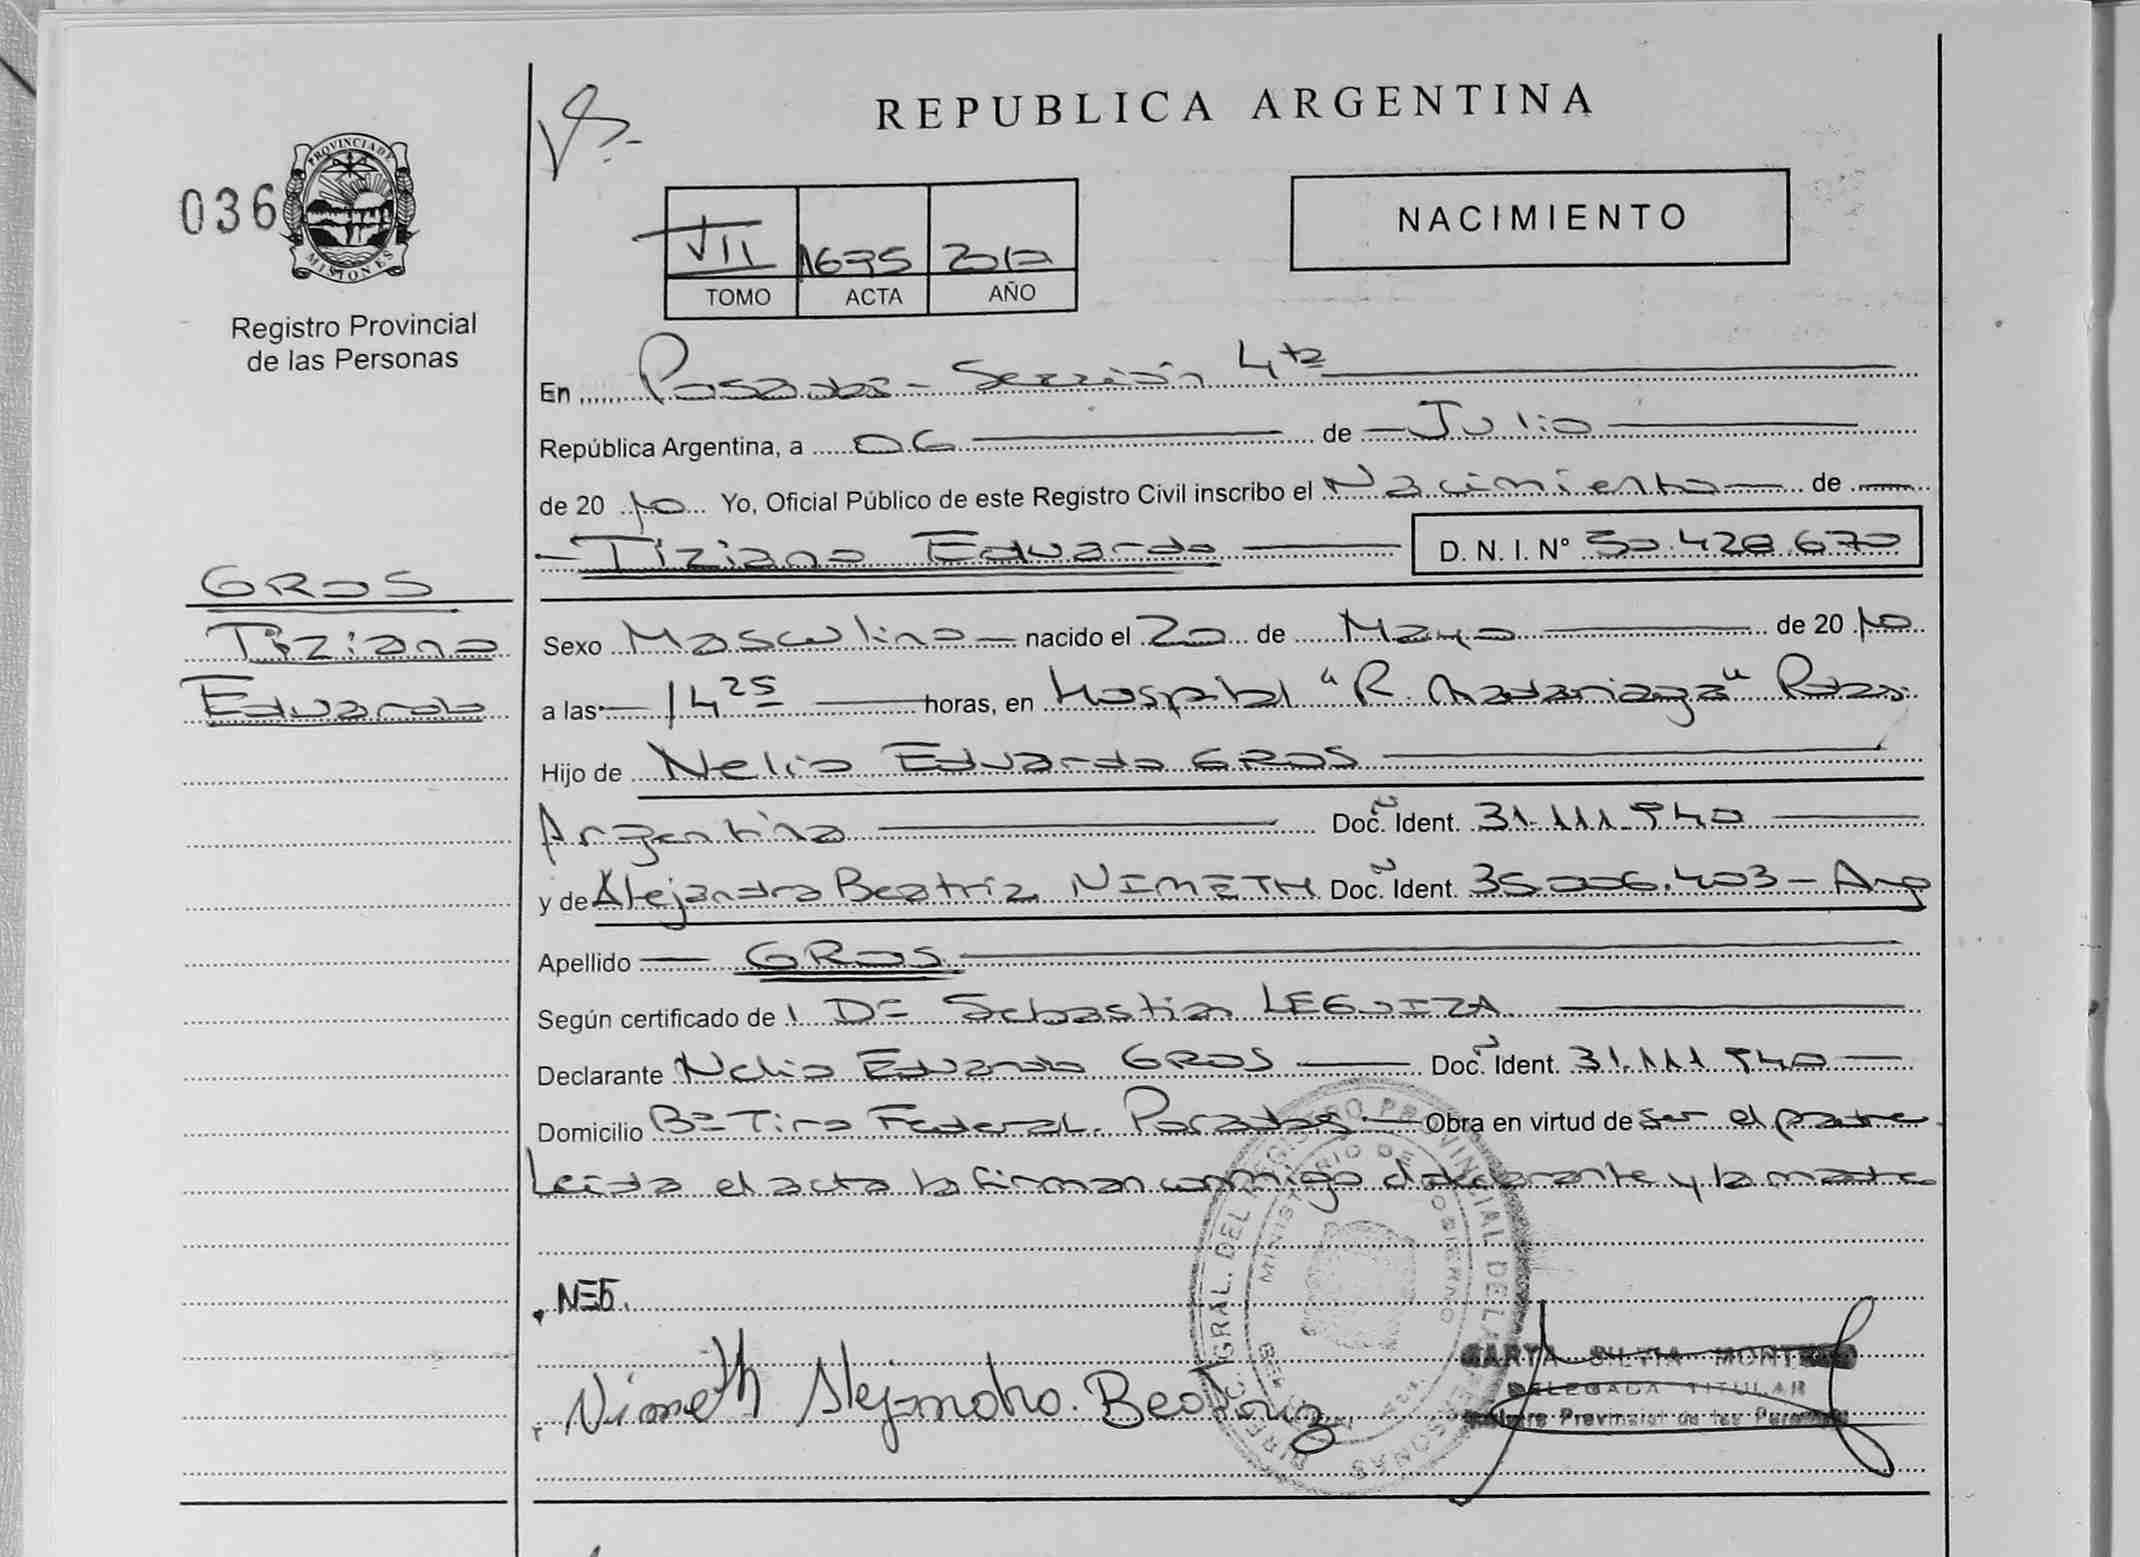 REPUBLICA ARGENTINA
036
PROVINCIA DE
MISIONES
Registro Provincial
de las Personas
NACIMIENTO
VII 1675
TOMO ACTA AÑO
En Posadas - Sección 4ta
República Argentina, a 06 de Julio
de 2010 Yo, Oficial Público de este Registro Civil inscribo el Nacimiento de
Tiziano Eduardo D. N. I. N° 50.428.670
GROS
Tiziano
Eduardo
Sexo Masculino nacido el 20 de Mayo de 2010
a las 14 25 horas, en Hospital "R. Madariaga" Pdas.
Hijo de Nelio Eduardo GROS
Argentina Doc. Ident. 31.111.940
y de Alejandra Beatriz NIMETH Doc. Ident. 35.006.403 - Arg
Apellido GROS
Según certificado de Dr Sebastian LEGUIZA
Declarante Nelio Eduardo GROS Doc. Ident. 31.111.940
Domicilio Bº Tiro Federal. Posadas Obra en virtud de ser el padre
Leída el acta la firman conmigo el declarante y la madre
DIREC. GRAL. DEL REGISTRO PROVINCIAL DE LAS PERSONAS
MINISTERIO DE GOBIERNO
NEG.
Nimeth Alejandra Beatriz
SILVIA
DELEGADA TITULAR
Provincial de las Personas